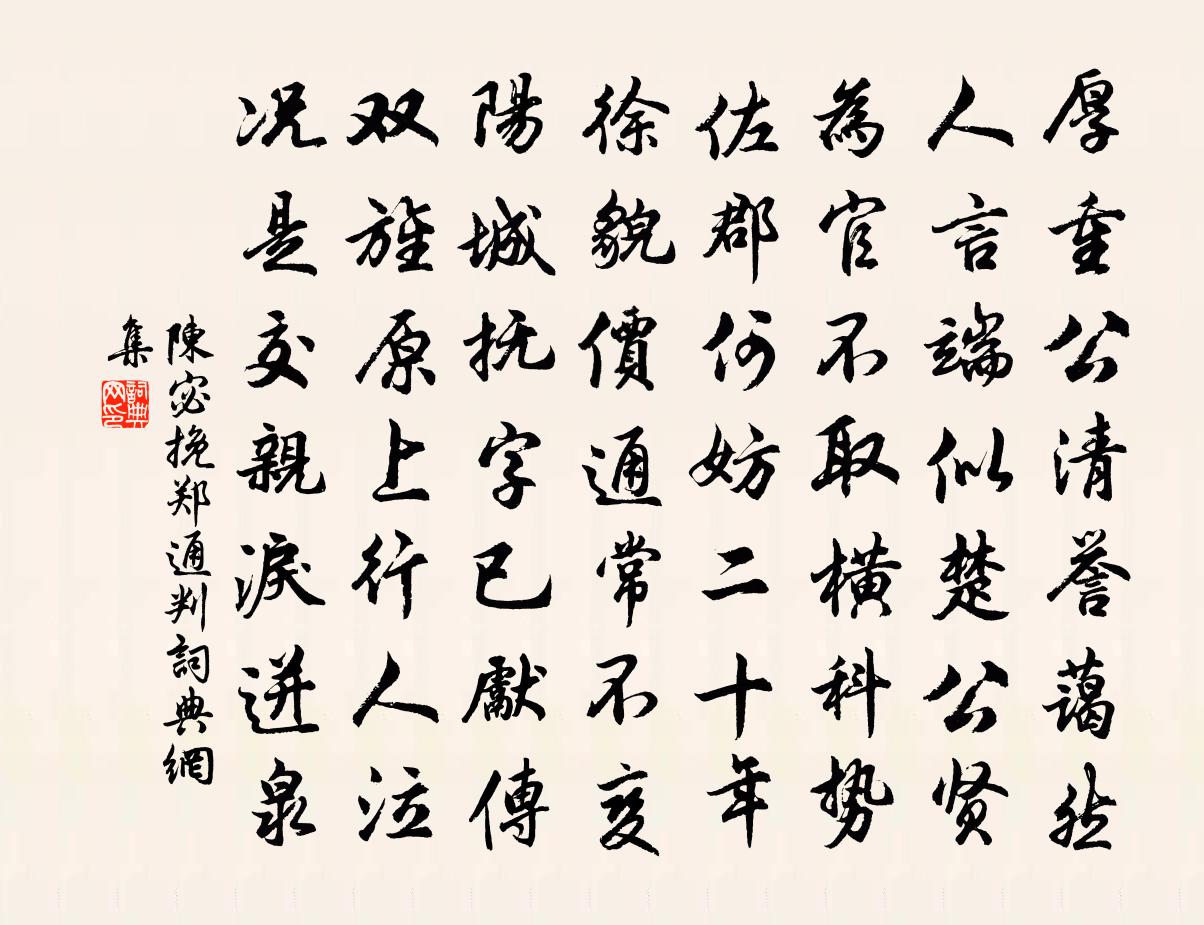 厚重公清誉藹然
人言端似楚公贤
為官不取横科势
佐郡何妨二十年
徐貌價通常不变
陽城抚字已獻傳
双旌原上行人泣
况是交親淚迸泉
陳宓挽郑通判詞典網
集
詞典
网印